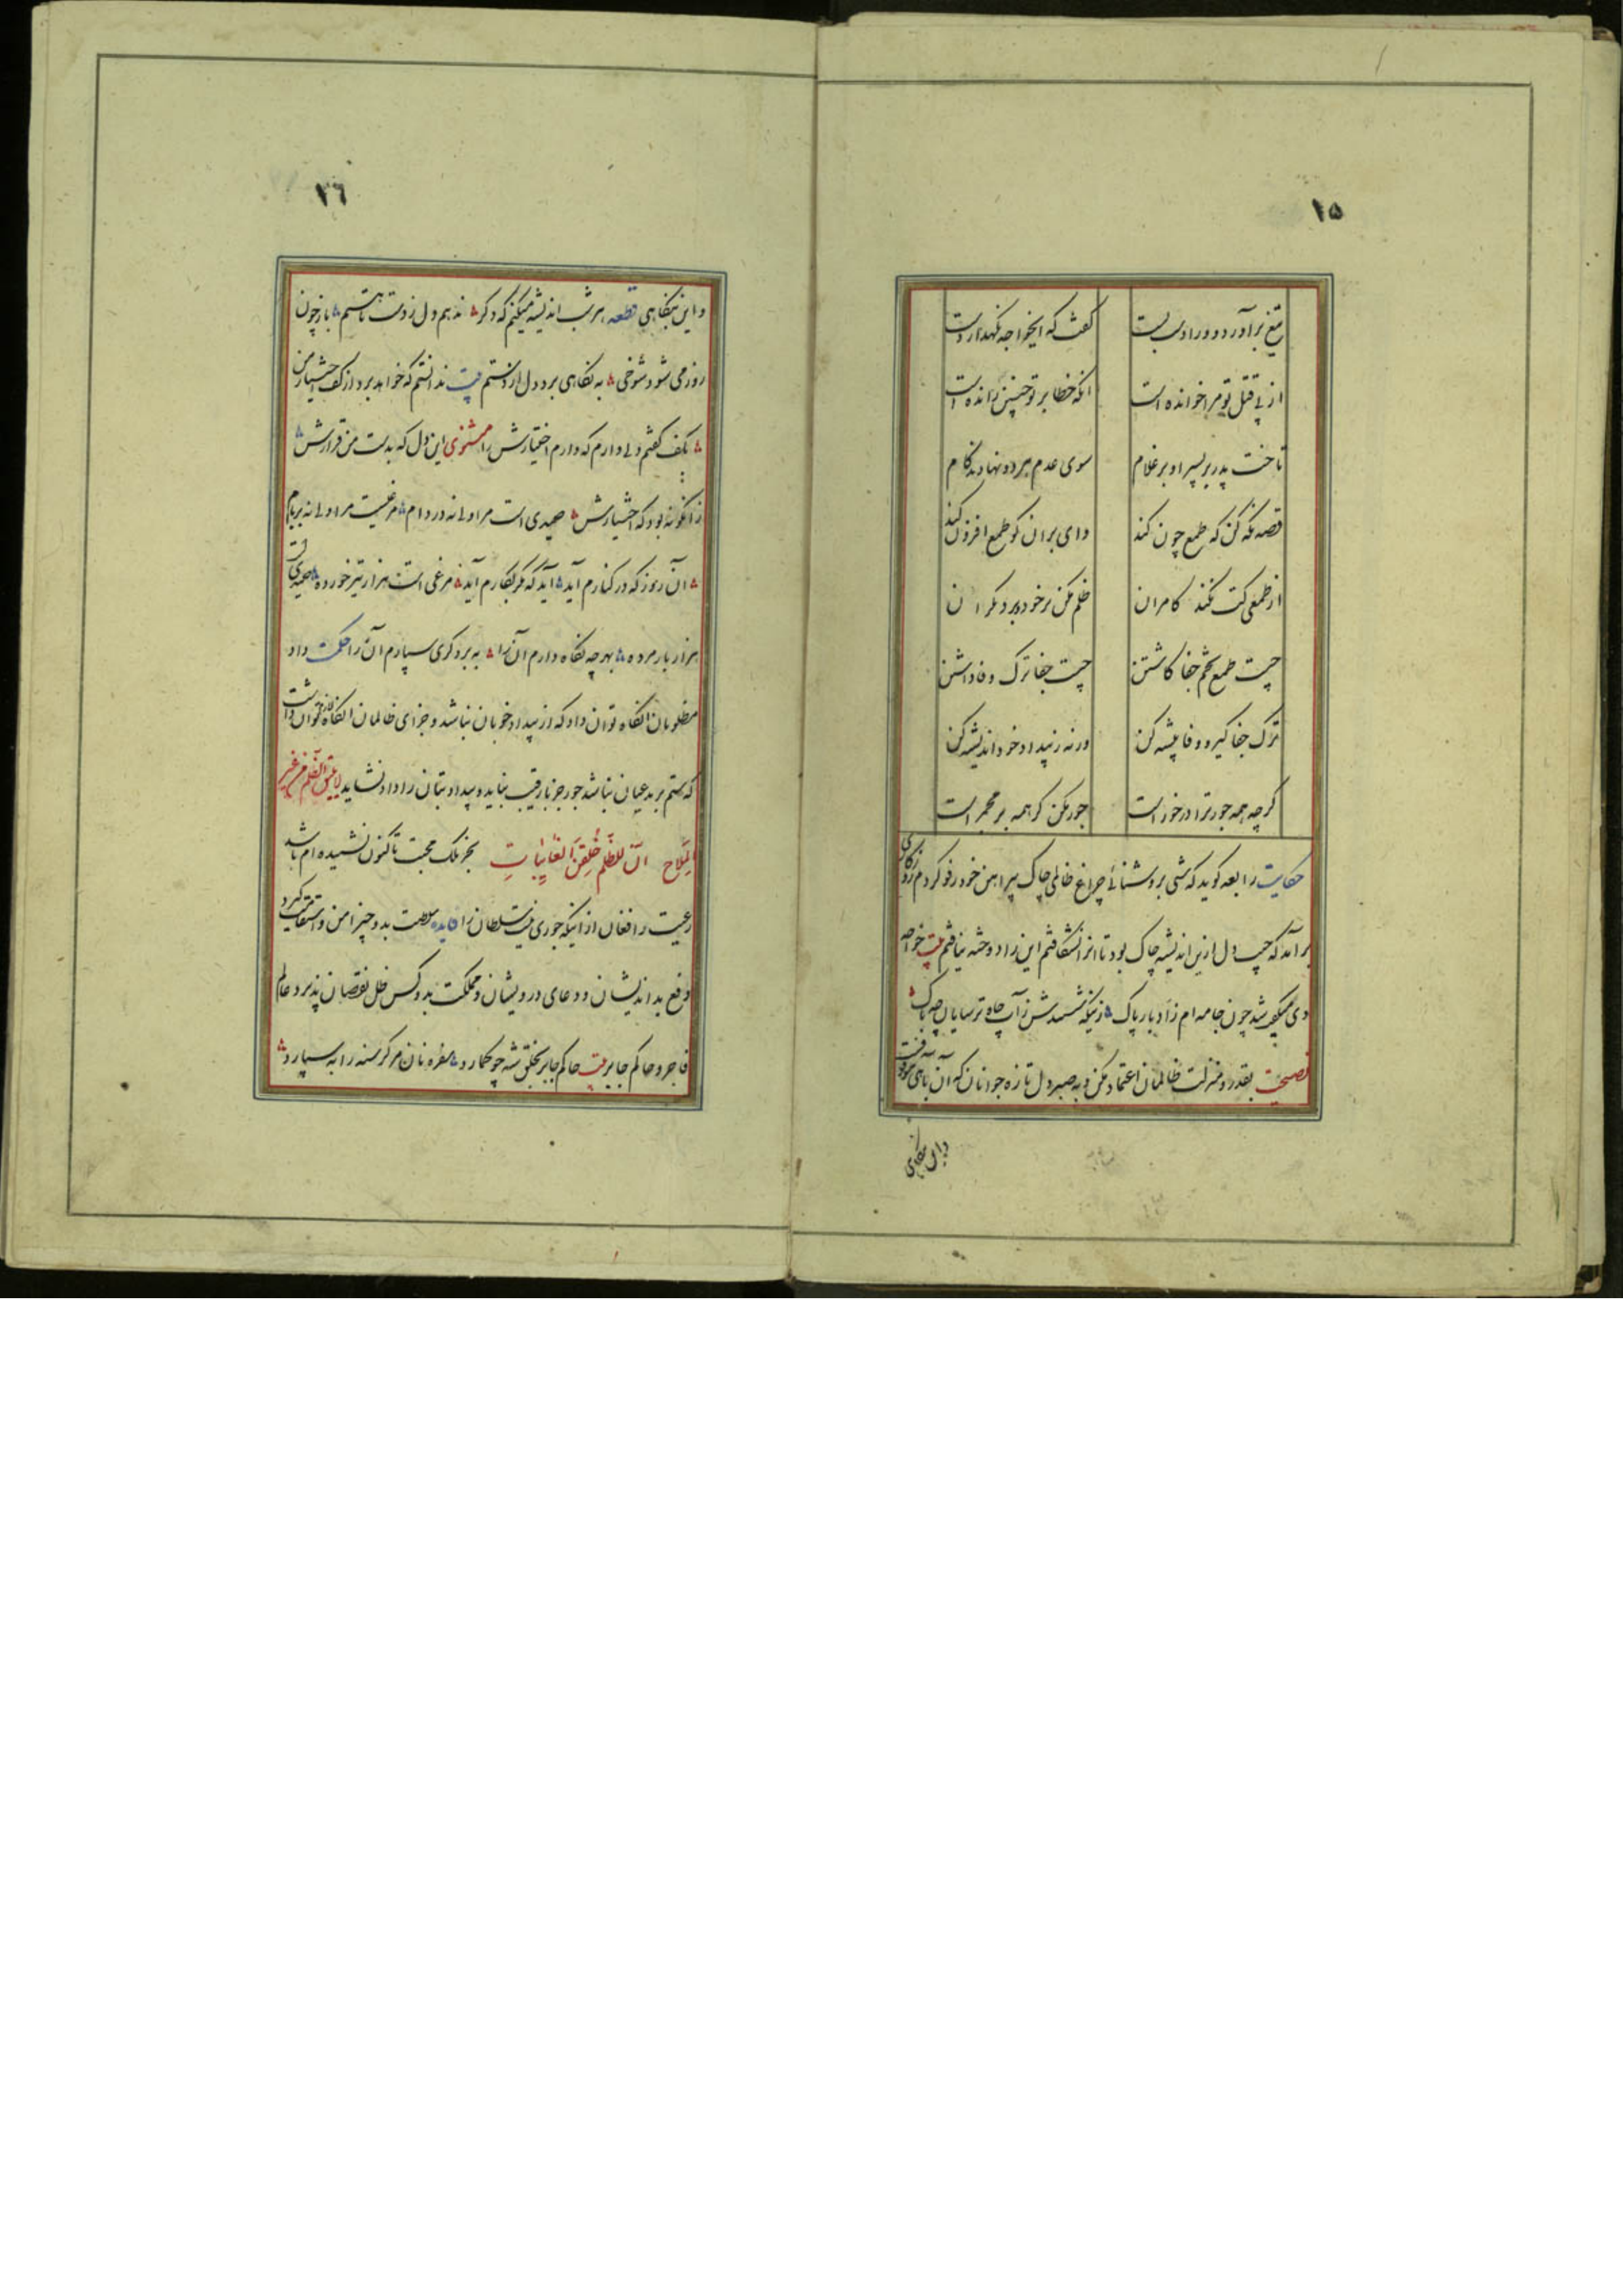 ۱۵
تیغ برآورد دو ورا دست بست گفت که ایخواجه نگهدار دست
از پی قتل تو مرا خوانده است آنکه خطا بر تو چنین رانده است
تاخت پدر بر پسر او بر غلام سوی عدم هر دو نهادند گام
قصه نگه کن که طمع چون کند وای بر آن کو طمع افزون کند
از طمعی کت نکند کامران ظلم مکن بر خود و بر دیگران
چیست طمع تخم جفا کاشتن چیست جفا ترک وفا داشتن
ترک جفا گیر و وفا پیشه کن ورنه ز بیداد خود اندیشه کن
گرچه همه جور ترا درخور است جور مکن گر همه بر مجرم است
حکایت رابعه گوید که شبی بروشنائی چراغ ظالمی چاک پیراهن خود رفو کردم روزگاری
برآمد که جیب دل ازین اندیشه چاک بود تا آنرا نشکافتم این را دوخته نیافتم بیت خواجه
دی میگفت شد چون جامه ام زآب پاک زینکه شستندش زآب چاه ترسایان چه باک
نصیحت بقدر و منزلت ظالمان اعتماد مکن و به صبر دل تازه جوانان که آن بآهی رود
و این بنگاهی
۱۶
و این بنگاهی قطعه هر شب اندیشه میکنم که دگر ندهم دل ز دست تا هستم باز چون
روز می شود شوخی به نگاهی برد دل از دستم بیت ندانستم که خواهد برد از کف اختیار من
بکف گفتم دلی دارم که دارم اختیارش را مثنوی این دل که بدست من قرارش
زانگونه بود که اختیارش صیدی است مرا ولی نه در دام مرغیست مرا ولی نه بر بام
آن روز که در کنارم آید آید که مگر بکارم آید مرغی است هزار تیر خورده صیدی است
هزار بار مرده بهر چه نگاه دارم آن را به برد گری سپارم آن را حکمت داد
مظلومان آنگاه توان داد که از بیداد خوبان نباشد و جزای ظالمان آنگاه توان خواست
که ستم بر مدعیان نباشد جور جز با رقیب نباید و بیداد بتان را داد نشاید لا یلیق الظلم من غیر
الملاح ان للظلم خلقن الغانیات بجز ملک محبت تاکنون نشنیده ام باشد
رعیت را فغان از اینکه جوری نیست سلطان را فایده سلطنت بدو چیز امن و استقامت گیرد
دفع بداندیشان و دعای درویشان و مملکت بدو کس خلل و نقصان پذیرد عالم
فاجر و حاکم جابر بیت حاکم جابر بخلق شه چو گمارد سفره نان مر گرسنه را به سپارد